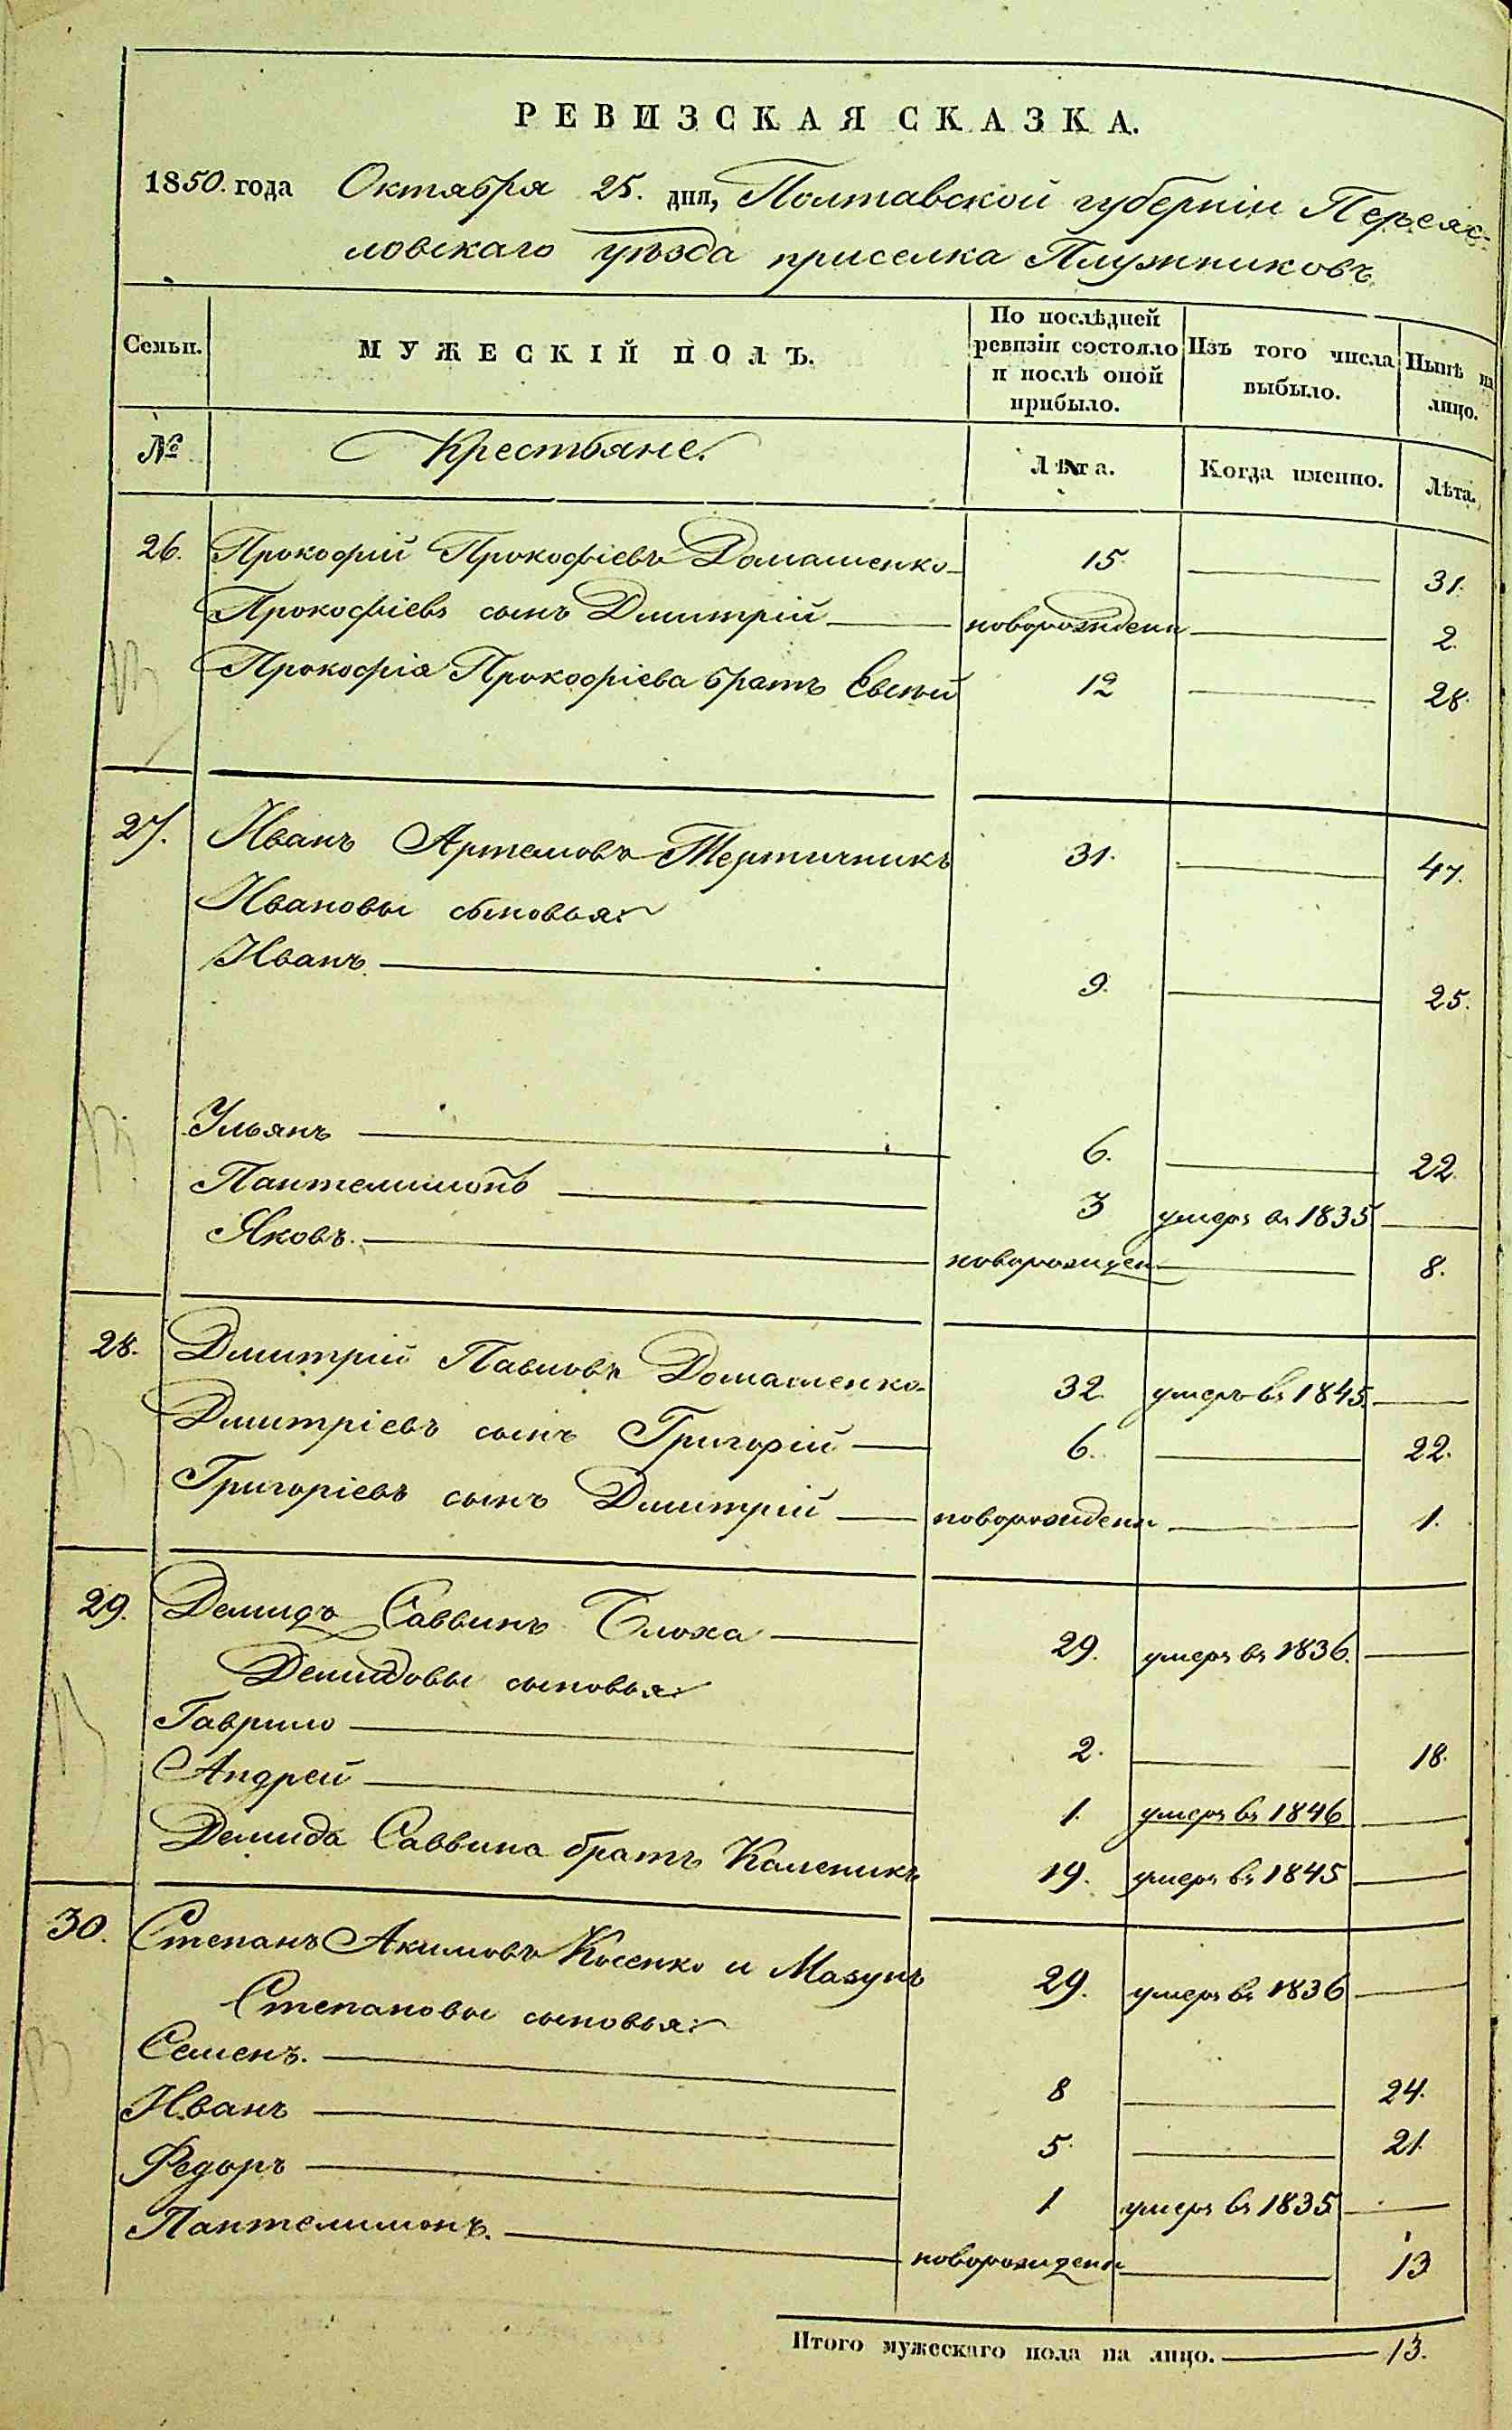 РЕВИЗСКАЯ СКАЗКА.
1850. года Октября 25. дня, Полтавской губерніи Переяс-
ловскаго уѣзда приселка Плужниковъ
Семьи. МУЖЕСКІЙ ПОЛЪ. По послѣдней ревизіи состояло и послѣ оной прибыло. Изъ того числа выбыло. Нынѣ на лицо.
№ Крестьяне. Лѣта. Когда именно. Лѣта.
26. Прокофій Прокофіевъ Домашенко 15. 31.
Прокофіевъ сынъ Дмитрій новорожденн 2.
Прокофія Прокофіева братъ Евсѣй 12 28.
27. Иванъ Артемовъ Тертичникъ 31. 47.
Ивановы сыновья:
Иванъ 9. 25.
Ульянъ 6. 22.
Пантелимонъ 3 умеръ въ 1835
Яковъ. новорожден 8.
28. Дмитрій Павловъ Домашенко 32. умеръ въ 1845.
Дмитріевъ сынъ Григорій 6. 22.
Григоріевъ сынъ Дмитрій новорожденн 1.
29. Демидъ Саввинъ Блоха 29. умеръ въ 1836.
Демидовы сыновья:
Гаврило 2. 18.
Андрей 1. умеръ въ 1846.
Демида Саввина братъ Каленикъ 19. умеръ въ 1845
30. Степанъ Акимовъ Косенко и Мазунъ 29. умеръ въ 1836
Степановы сыновья:
Семенъ. 8 24.
Иванъ 5. 21.
Федоръ 1 умеръ въ 1835
Пантелимонъ. новорожденн 13
Итого мужескаго пола на лицо. 13.